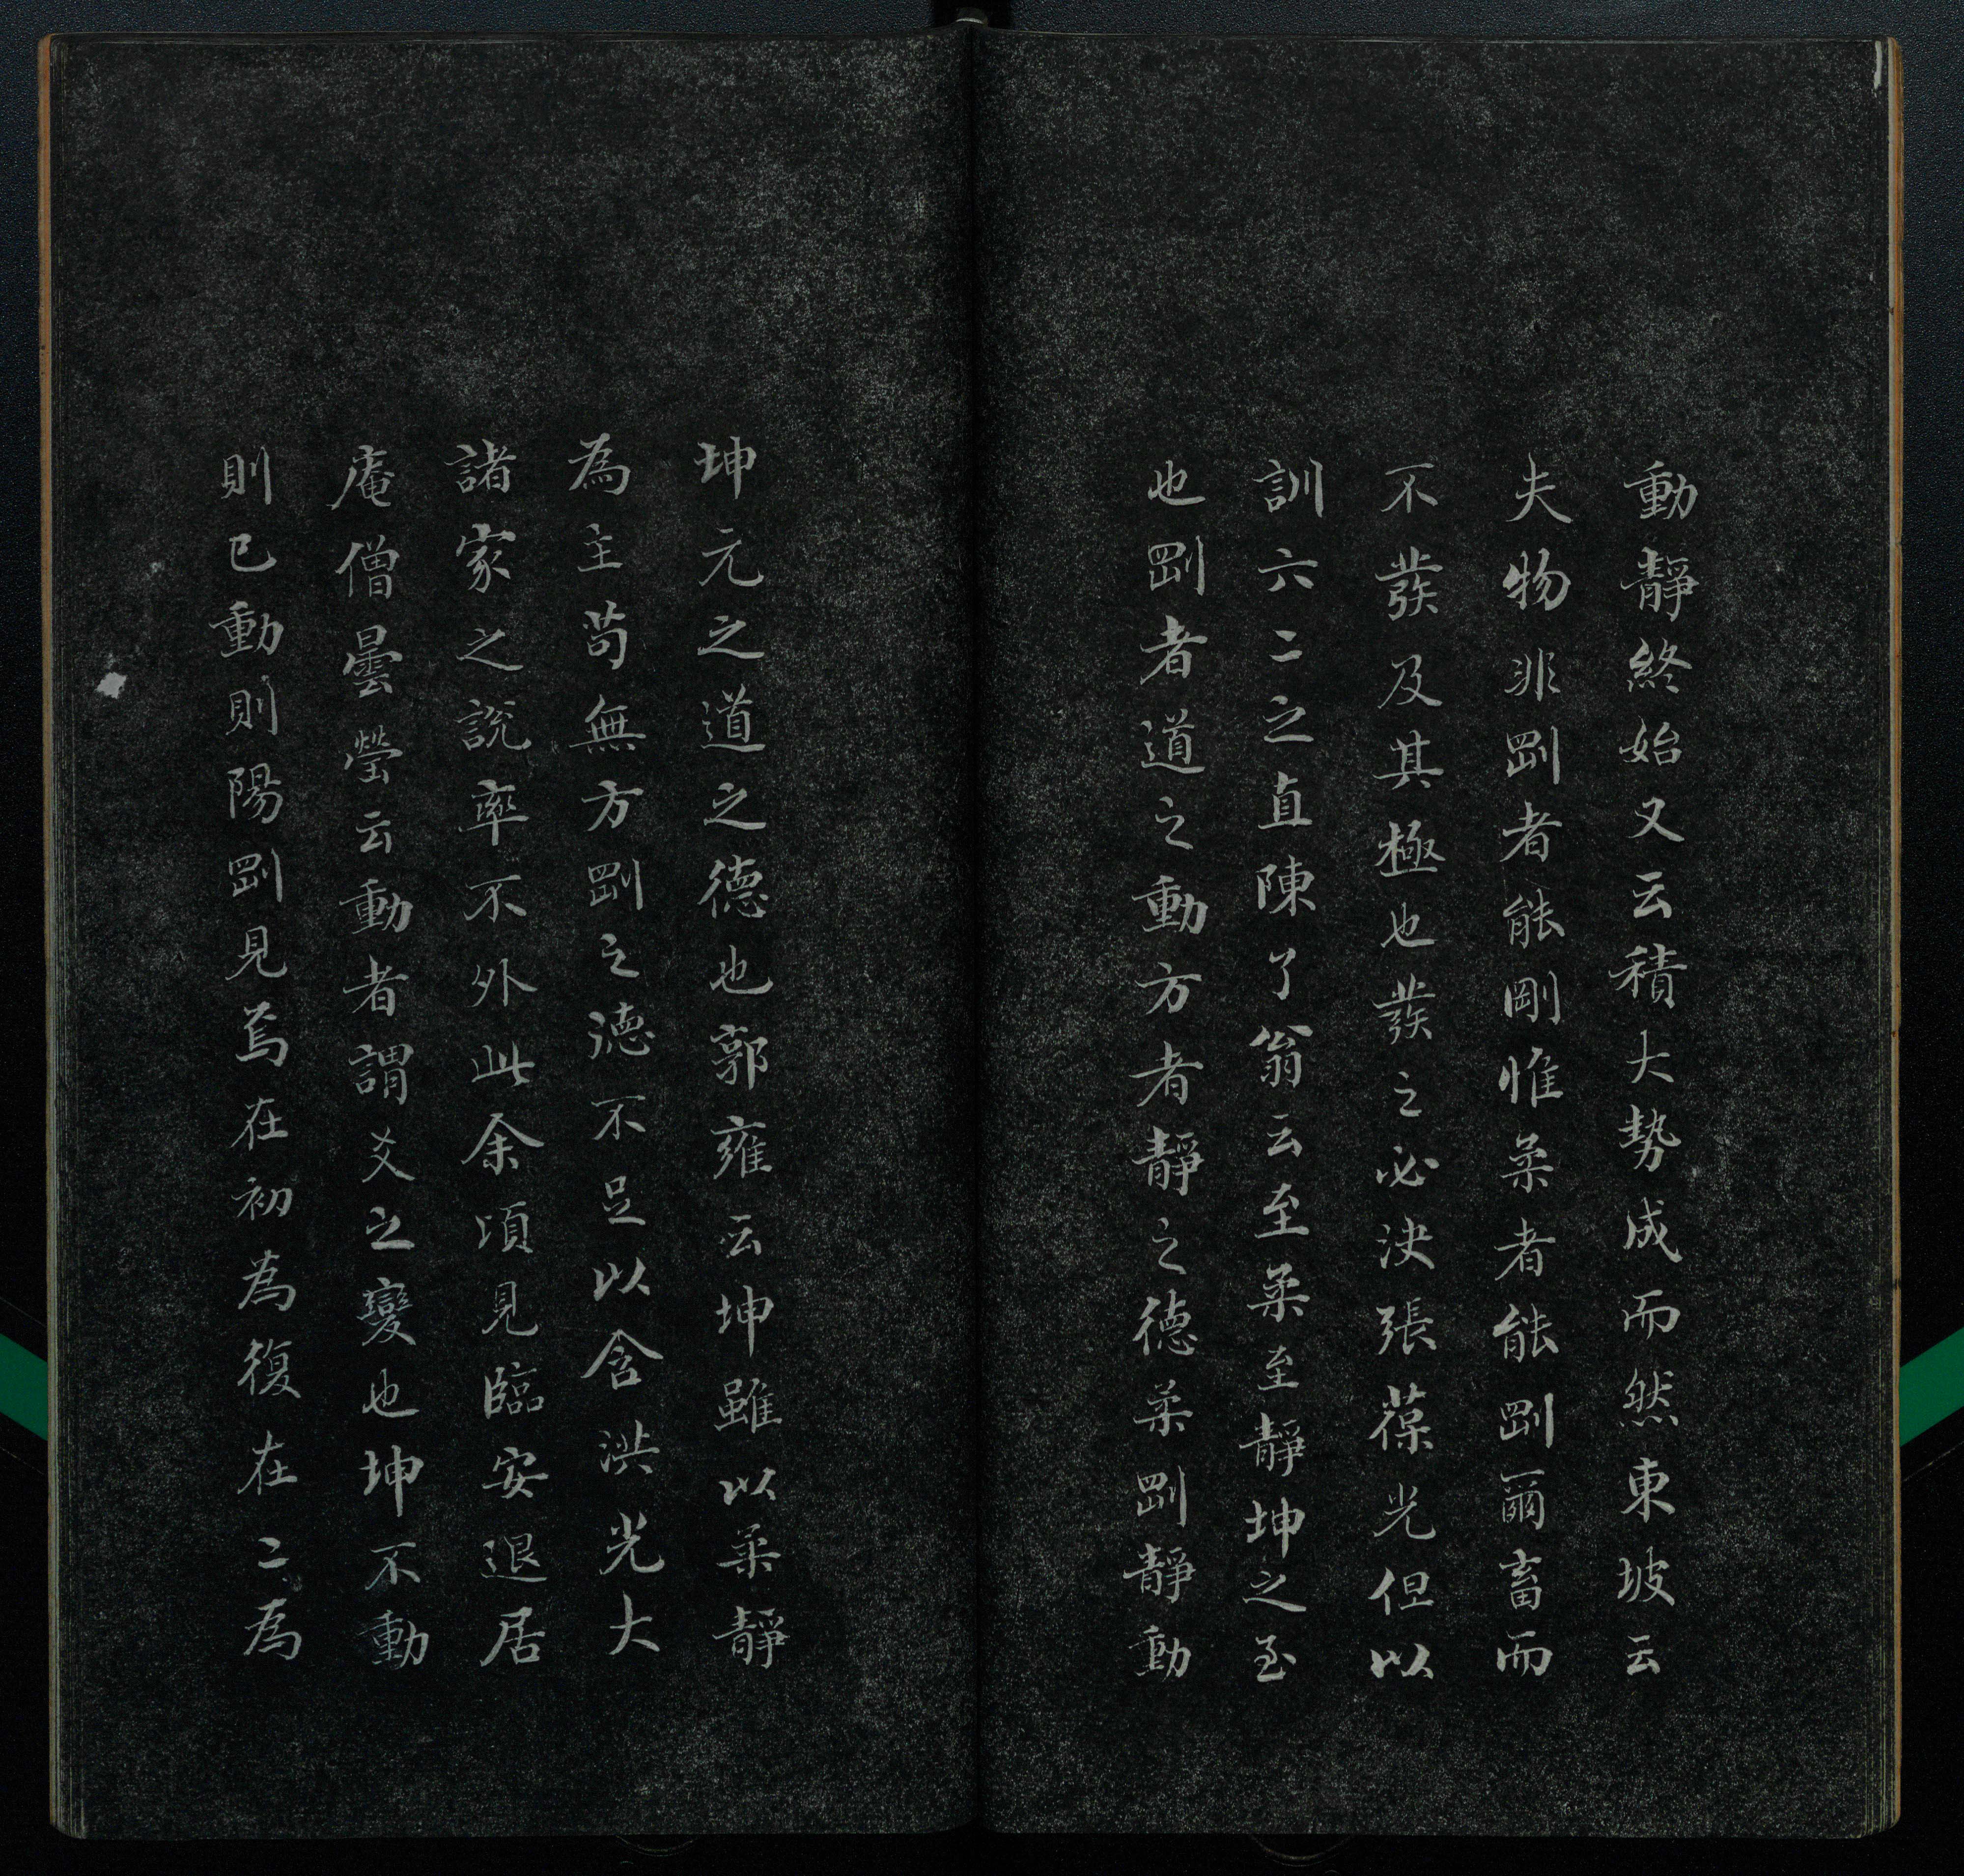 動靜終始又云積大勢成而然東坡云
夫物非剛者能剛惟柔者能剛爾畜而
不發及其極也發之必決張葆光但以
訓六二之直陳了翁云至柔至靜坤之至
也剛者道之動方者靜之德柔剛靜動
坤元之道之德也郭雍云坤雖以柔靜
為主苟無方剛之德不足以含洪光大
諸家之說率不外此余頃見臨安退居
庵僧曇瑩云動者謂爻之變也坤不動
則已動則陽剛見焉在初為復在二為